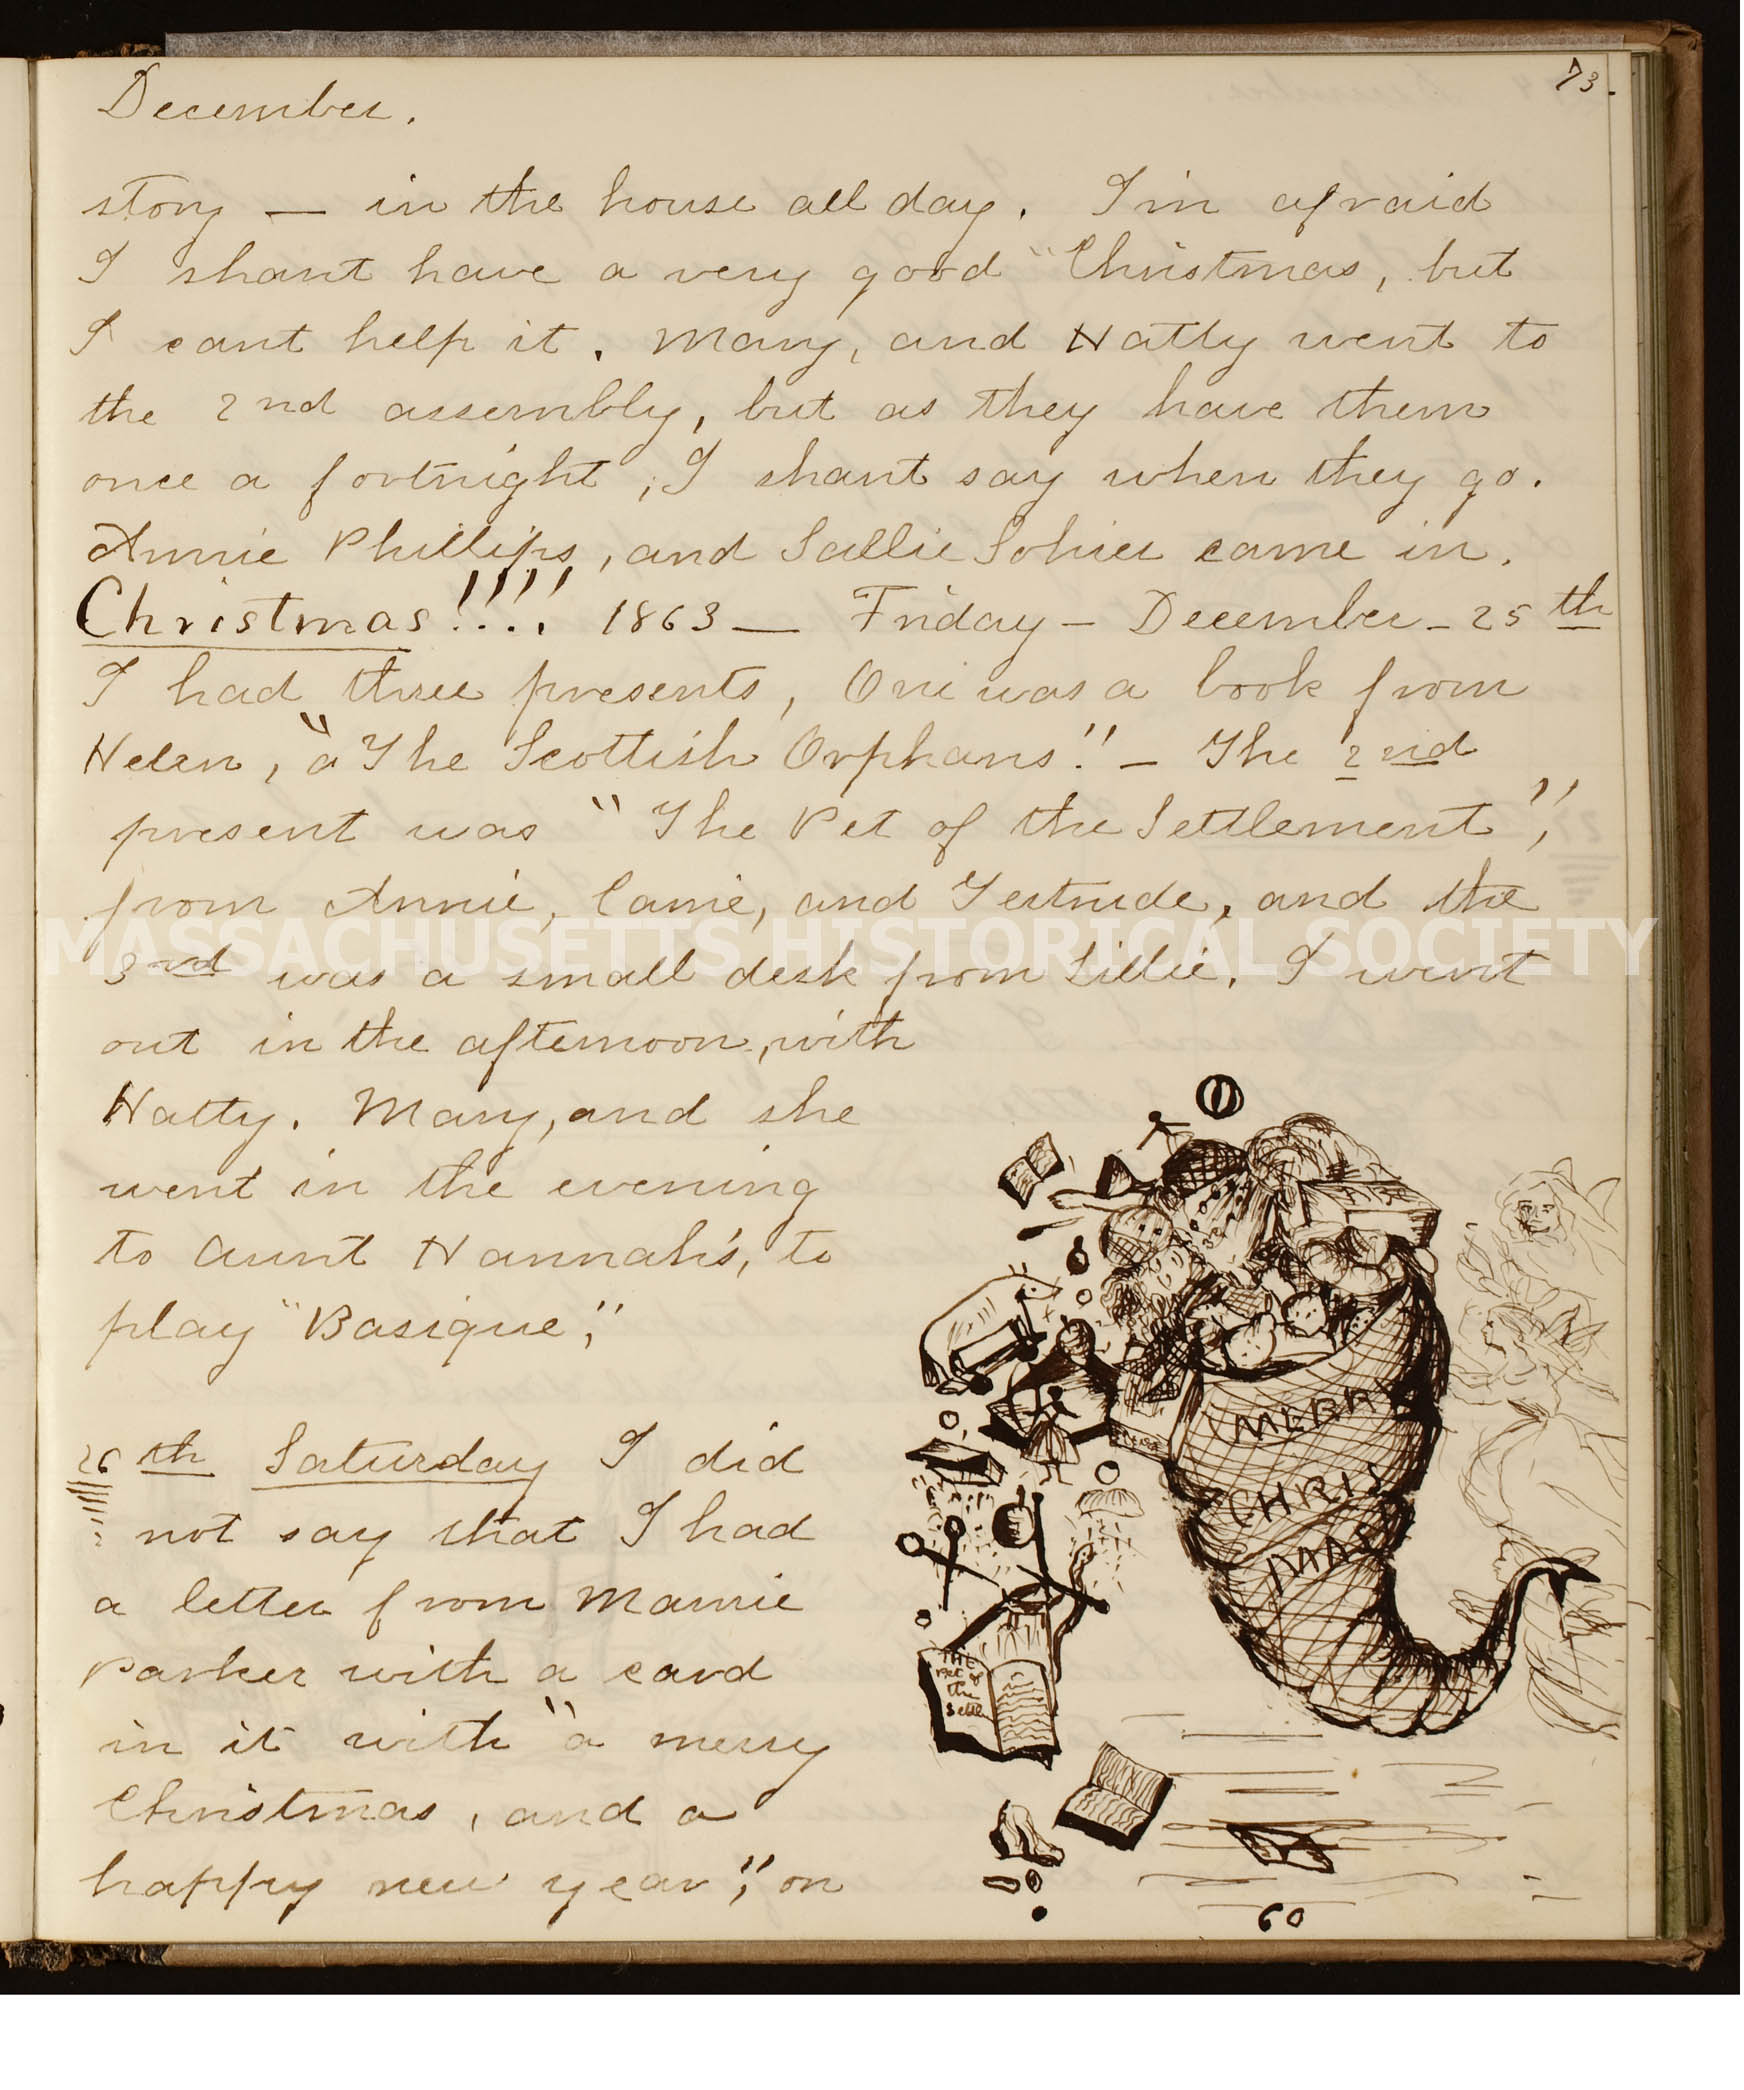 73.
December.
story — in the house all day. I'm afraid
I shant have a very good "Christmas, but
I cant help it. Mary, and Hatty went to
the 2nd assembly, but as they have them
once a fortnight, I shant say when they go.
Annie Phillips, and Sallie Sohier came in.
Christmas!!!! 1863 — Friday — December — 25th
I had three presents, One was a book from
Helen, "a The Scottish Orphans." — The 2nd
present was "The Pet of the Settlement",
from Annie, Carrie, and Gertrude, and the
3rd was a small desk from Lillie. I went
out in the afternoon, with
Hatty. Mary, and she
went in the evening
to Aunt Hannah's, to
play "Basique",
26th Saturday I did
not say that I had
a letter from Mamie
Parker with a card
in it with "a merry
Christmas, and a
happy new year", on
MERRY
CHRIS
MAS
THE
Pet of
the
Settl
60
MASSACHUSETTS HISTORICAL SOCIETY